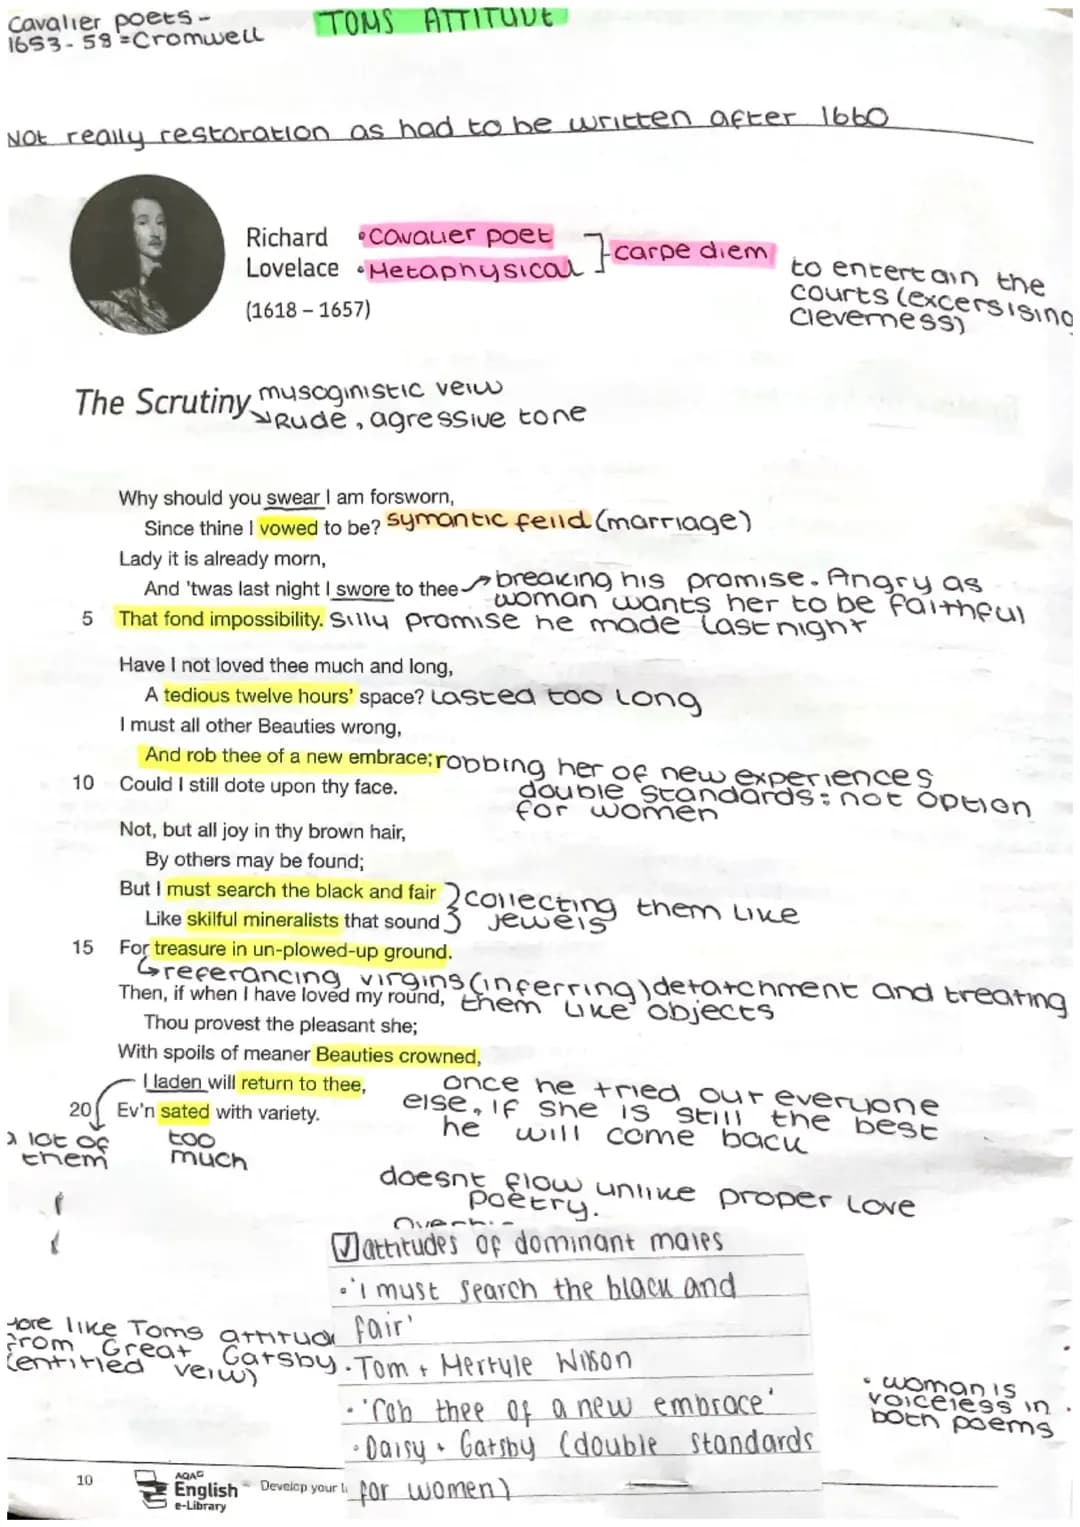 Cavalier poets -
1653 - 59 = Cromwell
TOMS ATTITUDE
Not really restoration as had to be written after 1660
Richard
Lovelace
(1618 – 1657)
• Cavalier poet
• Metaphysical
carpe diem
to entertain the
courts (excersising
cleverness)
The Scrutiny
mysoginistic veiw
Rude, agressive tone
Why should you swear I am forsworn,
Since thine I vowed to be? symantic feild (marriage)
Lady it is already morn,
And 'twas last night I swore to thee
breaking his promise. Angry as
woman wants her to be faithful
5 That fond impossibility. Silly promise he made last night
Have I not loved thee much and long,
A tedious twelve hours' space? Lasted too long
I must all other Beauties wrong,
And rob thee of a new embrace; robbing her of new experiences
10 Could I still dote upon thy face.
double standards: not option
for women
Not, but all joy in thy brown hair,
By others may be found;
But I must search the black and fair
Like skilful mineralists that sound
collecting them like
jewels
15 For treasure in un-plowed-up ground.
referancing virgins (inferring) detatchment and treating
them like objects
Then, if when I have loved my round,
Thou provest the pleasant she;
With spoils of meaner Beauties crowned,
I laden will return to thee,
20 Ev'n sated with variety.
a lot of
them
too
much
once he tried our everyone
else, if she is still the best
he will come back
doesnt flow unlike proper love
poetry.
☑ attitudes of dominant males
• 'i must search the black and
fair'
• Tom + Mertyle Wilson
• 'rob thee of a new embrace'
• Daisy + Gatsby (double standards
for women)
More like Toms attitude
from Great Gatsby
(entitled veiw)
• woman is
voiceless in
both poems
10
AQA
English
e-Library
Develop your